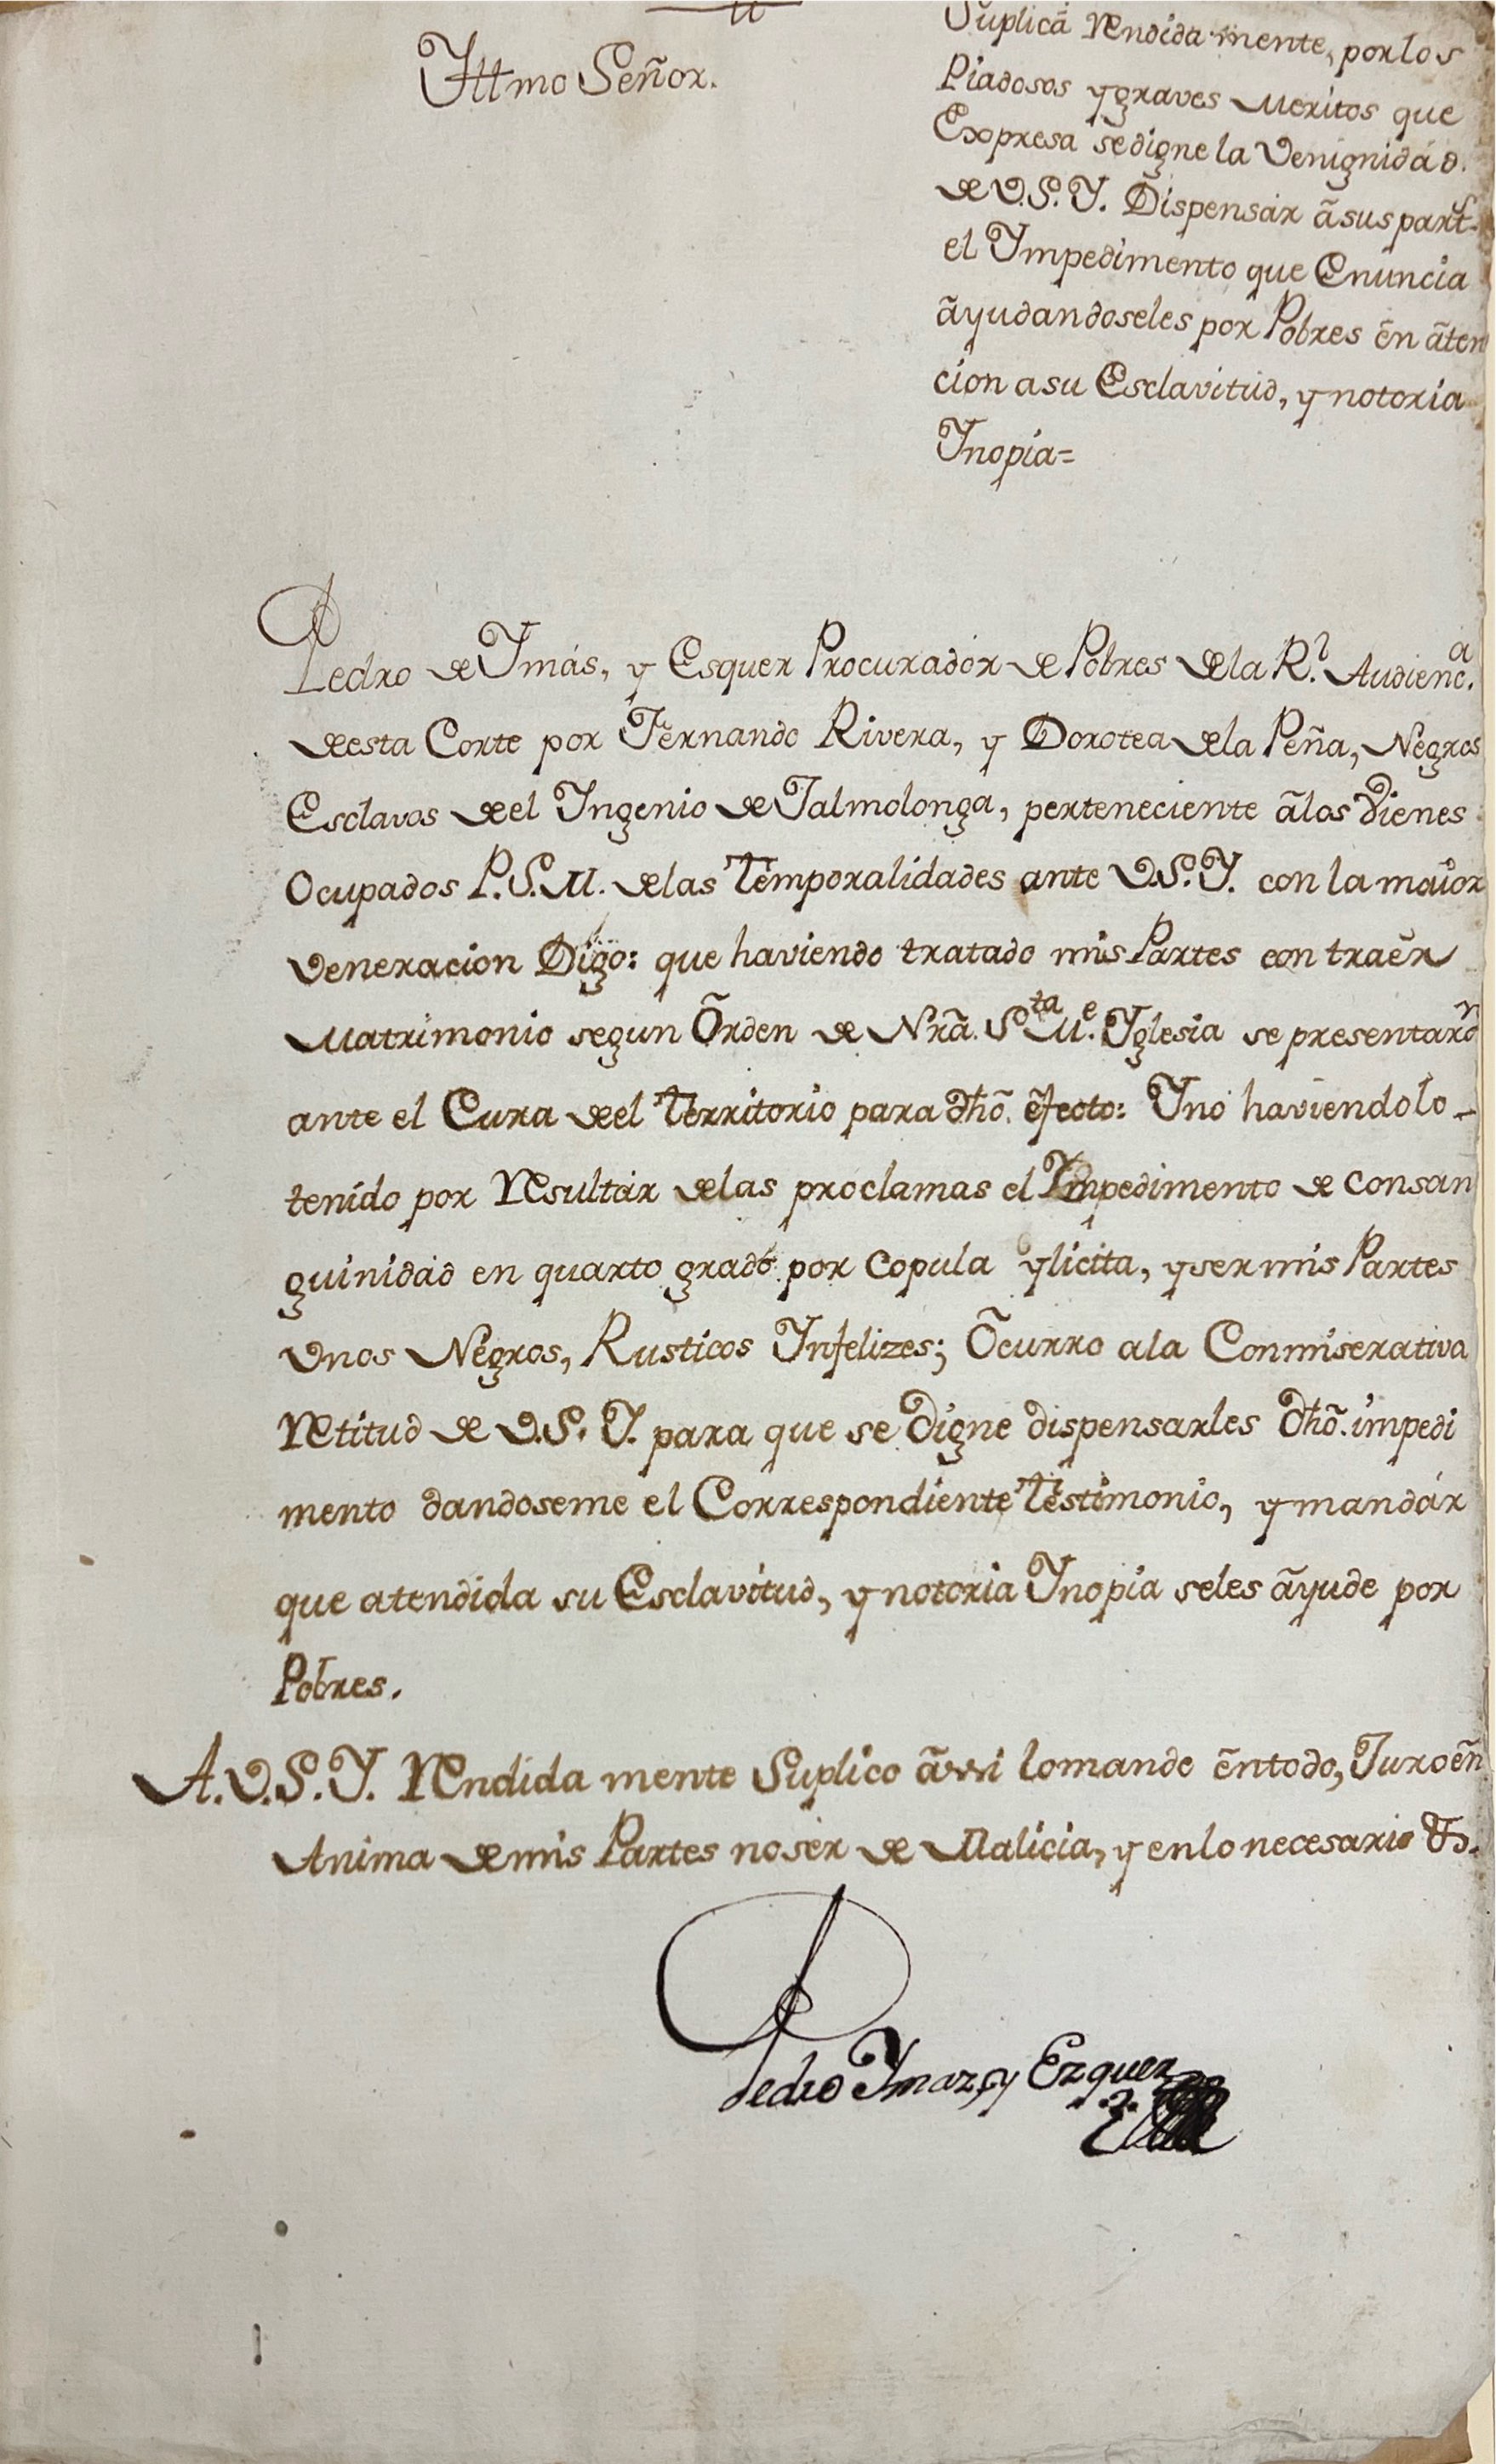 Yllmo Señor.
Suplicā rendida mente, por los
Piadosos y graves meritos que
Expresa se digne la Venignidád.
de V.S.Y. Dispensar ā sus part.s
el Ympedimento que Enuncia
āyudandoseles por Pobres ēn āten
cion a su Esclavitud, y notoria
Ynopia=
Pedro de Ymás, y Esquer Procurador de Pobres de la R.l Audienc.a
de esta Corte por Fernando Rivera, y Dorotea de la Peña, Negros
Esclavos de el Yngenio de Jalmolonga, perteneciente ā los Vienes
Ocupados P.S.M. de las Temporalidades ante V.S.Y. con la maior
Veneracion Digo: que haviendo tratado mis Partes contraēr
Matrimonio segun Ōrden de Nrā. Sta Me. Yglesia se presentaron
ante el Cura de el Territorio para dhō. ēfecto: Y no haviendolo
tenido por resultár de las proclamas el Ympedimento de consan
guinidad en quarto grado por copula ylicita, y ser mis Partes
Vnos Negros, Rusticos Ynfelizes; Ōcurro a la Conmiserativa
retitud de V.S.Y. para que se digne dispensarles dhō. impedi
mento dandoseme el Correspondiente Testimonio, y mandár
que atendida su Esclavitud, y notoria Ynopia se les āyude por
Pobres.
A.V.S.Y. rendida mente Suplico āssi lo mande ēn todo, Juro ēn
Anima de mis Partes no ser de Malicia, y en lo necesario &.
Pedro Ymaz, y Ezquer